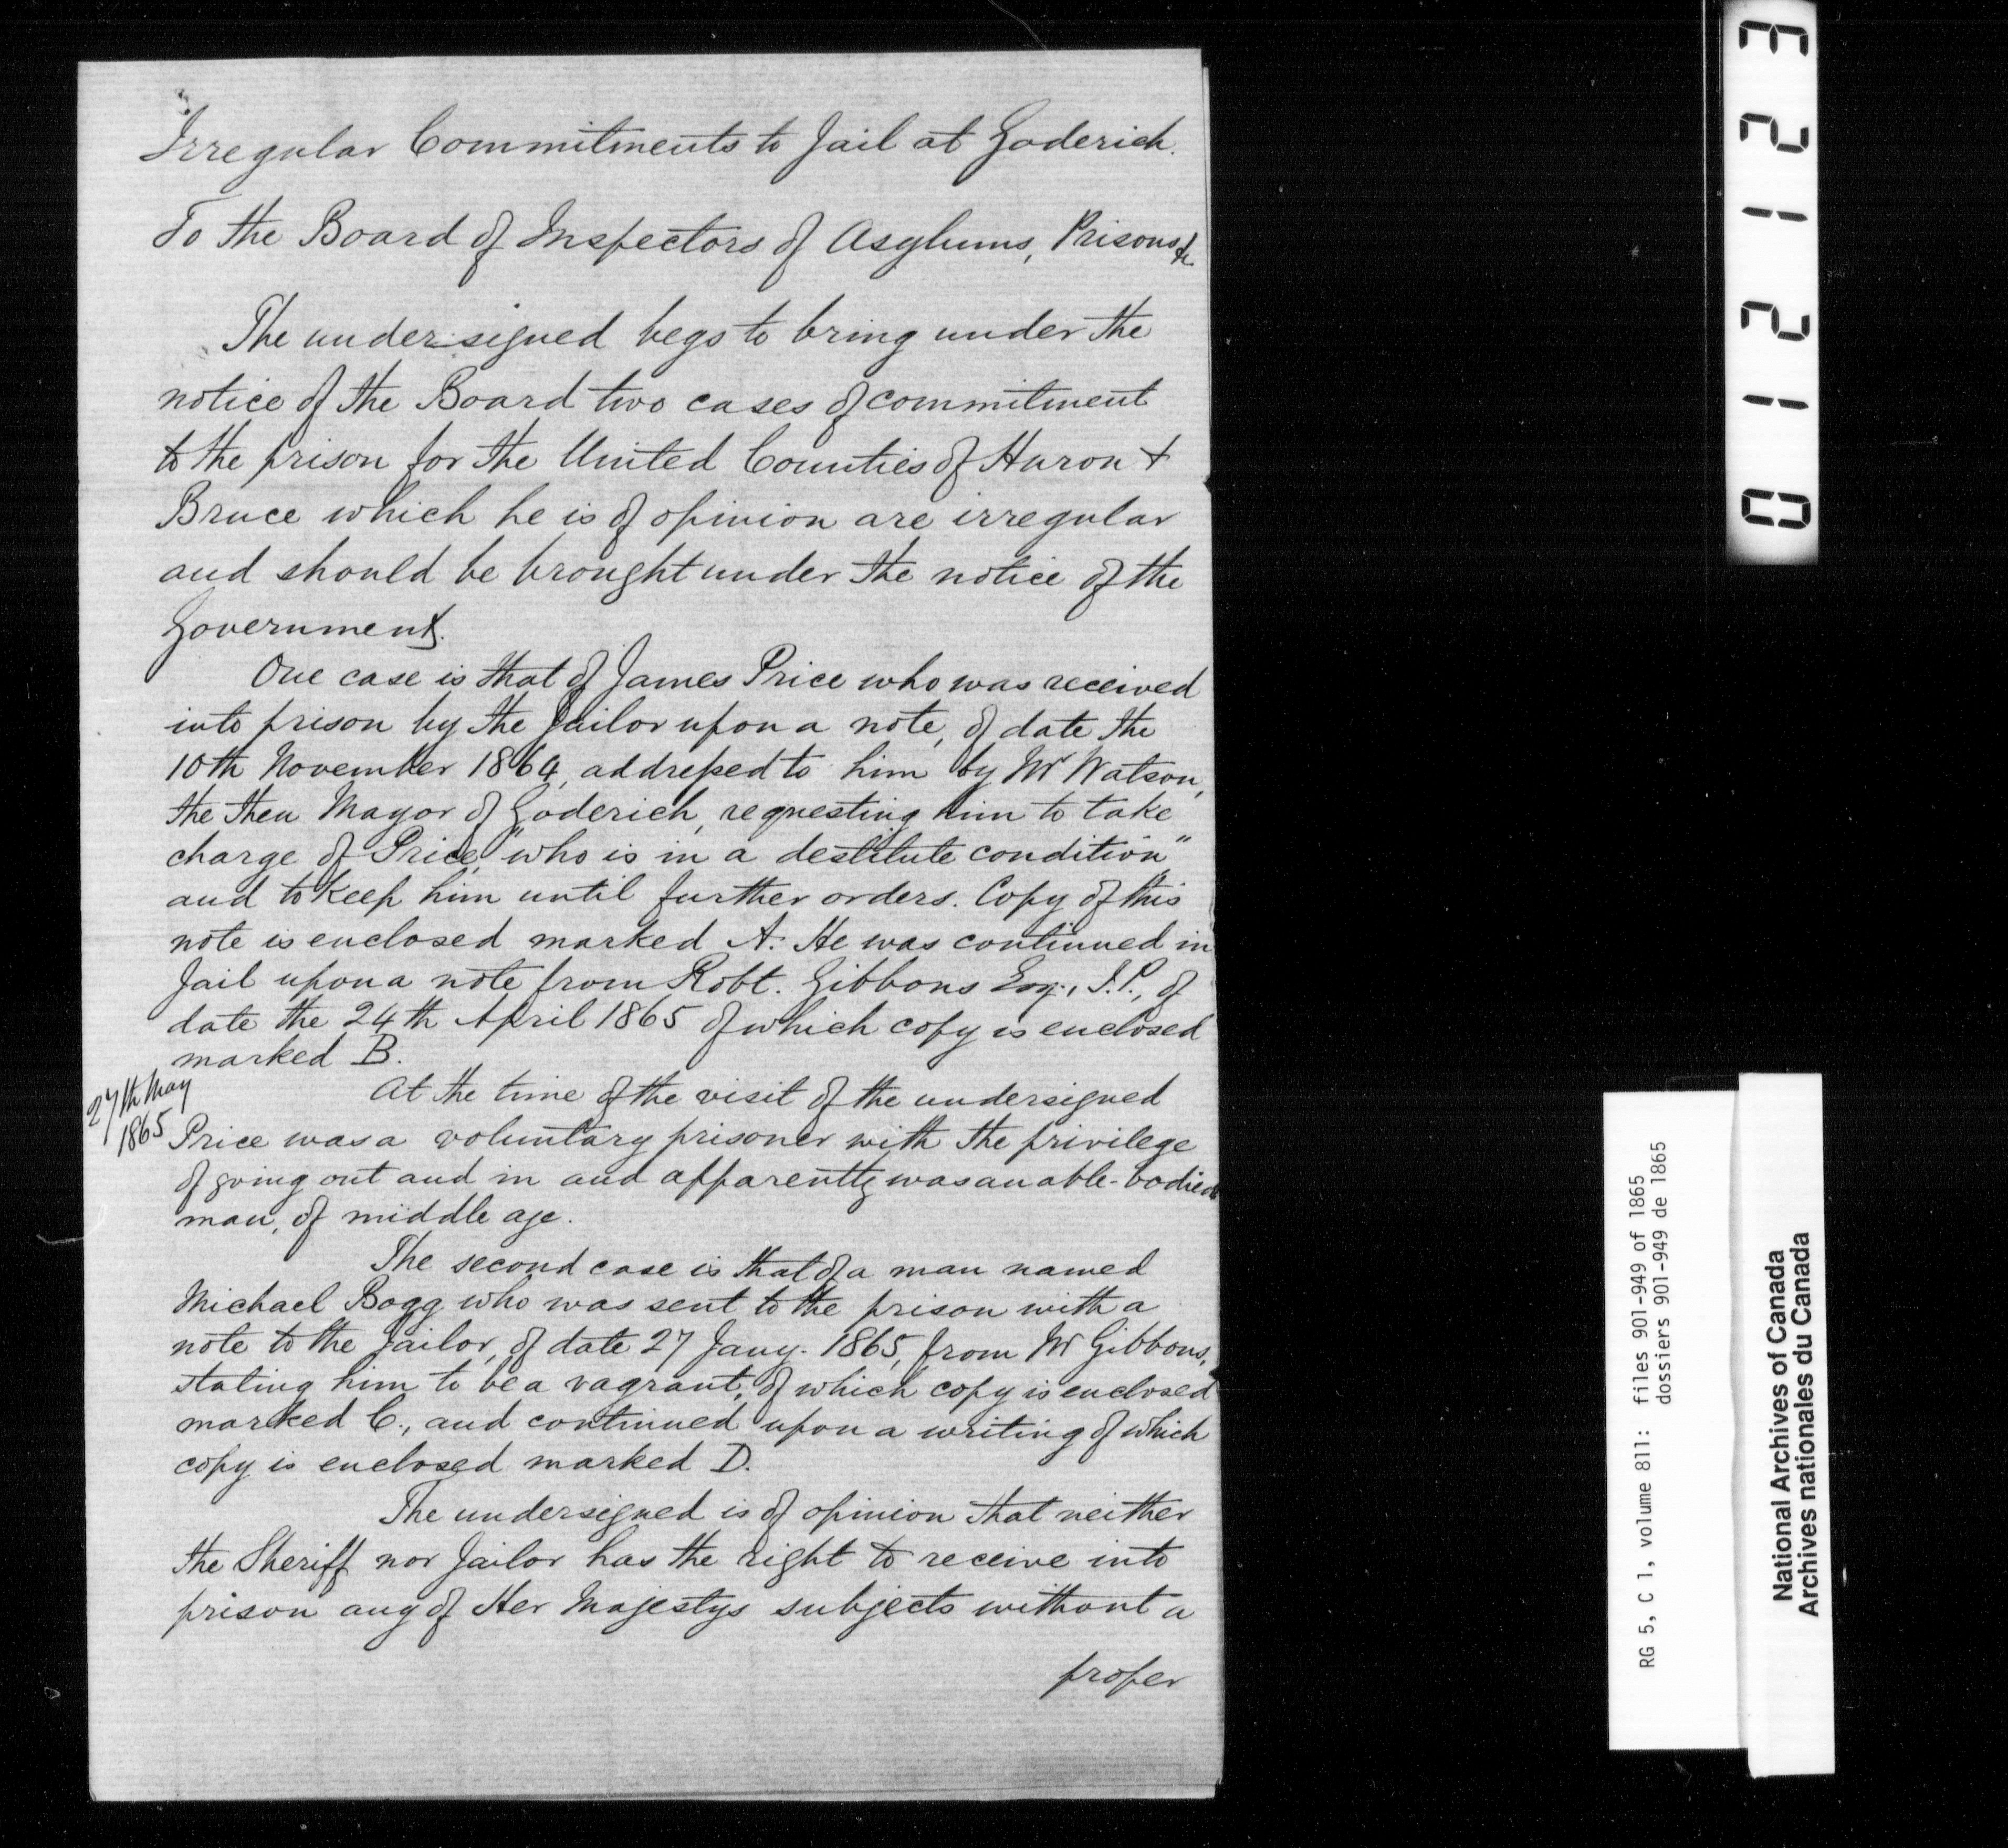 Irregular Commitments to Jail at Goderich.
To the Board of Inspectors of Asylums, Prisons &c
The undersigned begs to bring under the
notice of the Board two cases of commitment
to the prison for the United Counties of Huron &
Bruce which he is of opinion are irregular
and should be brought under the notice of the
Government.
One case is that of James Price who was received
into prison by the Jailor upon a note, of date the
10th November 1864, addressed to him by Mr Watson,
the then Mayor of Goderich, requesting him to take
charge of Price, "who is in a destitute condition"
and to keep him until further orders. Copy of this
note is enclosed marked A. He was continued in
Jail upon a note from Robt. Gibbons Esq., J.P., of
date the 24th April 1865 of which copy is enclosed
marked B.
27th May
1865
At the time of the visit of the undersigned
Price was a voluntary prisoner with the privilege
of going out and in and apparently was an able-bodied
man, of middle age.
The second case is that of a man named
Michael Bogg who was sent to the prison with a
note to the Jailor, of date 27 Jany. 1865, from Mr Gibbons,
stating him to be a vagrant, of which copy is enclosed
marked C., and continued upon a writing of which
copy is enclosed marked D.
The undersigned is of opinion that neither
the Sheriff nor Jailor has the right to receive into
prison any of Her Majestys subjects without a
proper
012123
RG 5, C 1, volume 811: files 901-949 of 1865
dossiers 901-949 de 1865
National Archives of Canada
Archives nationales du Canada